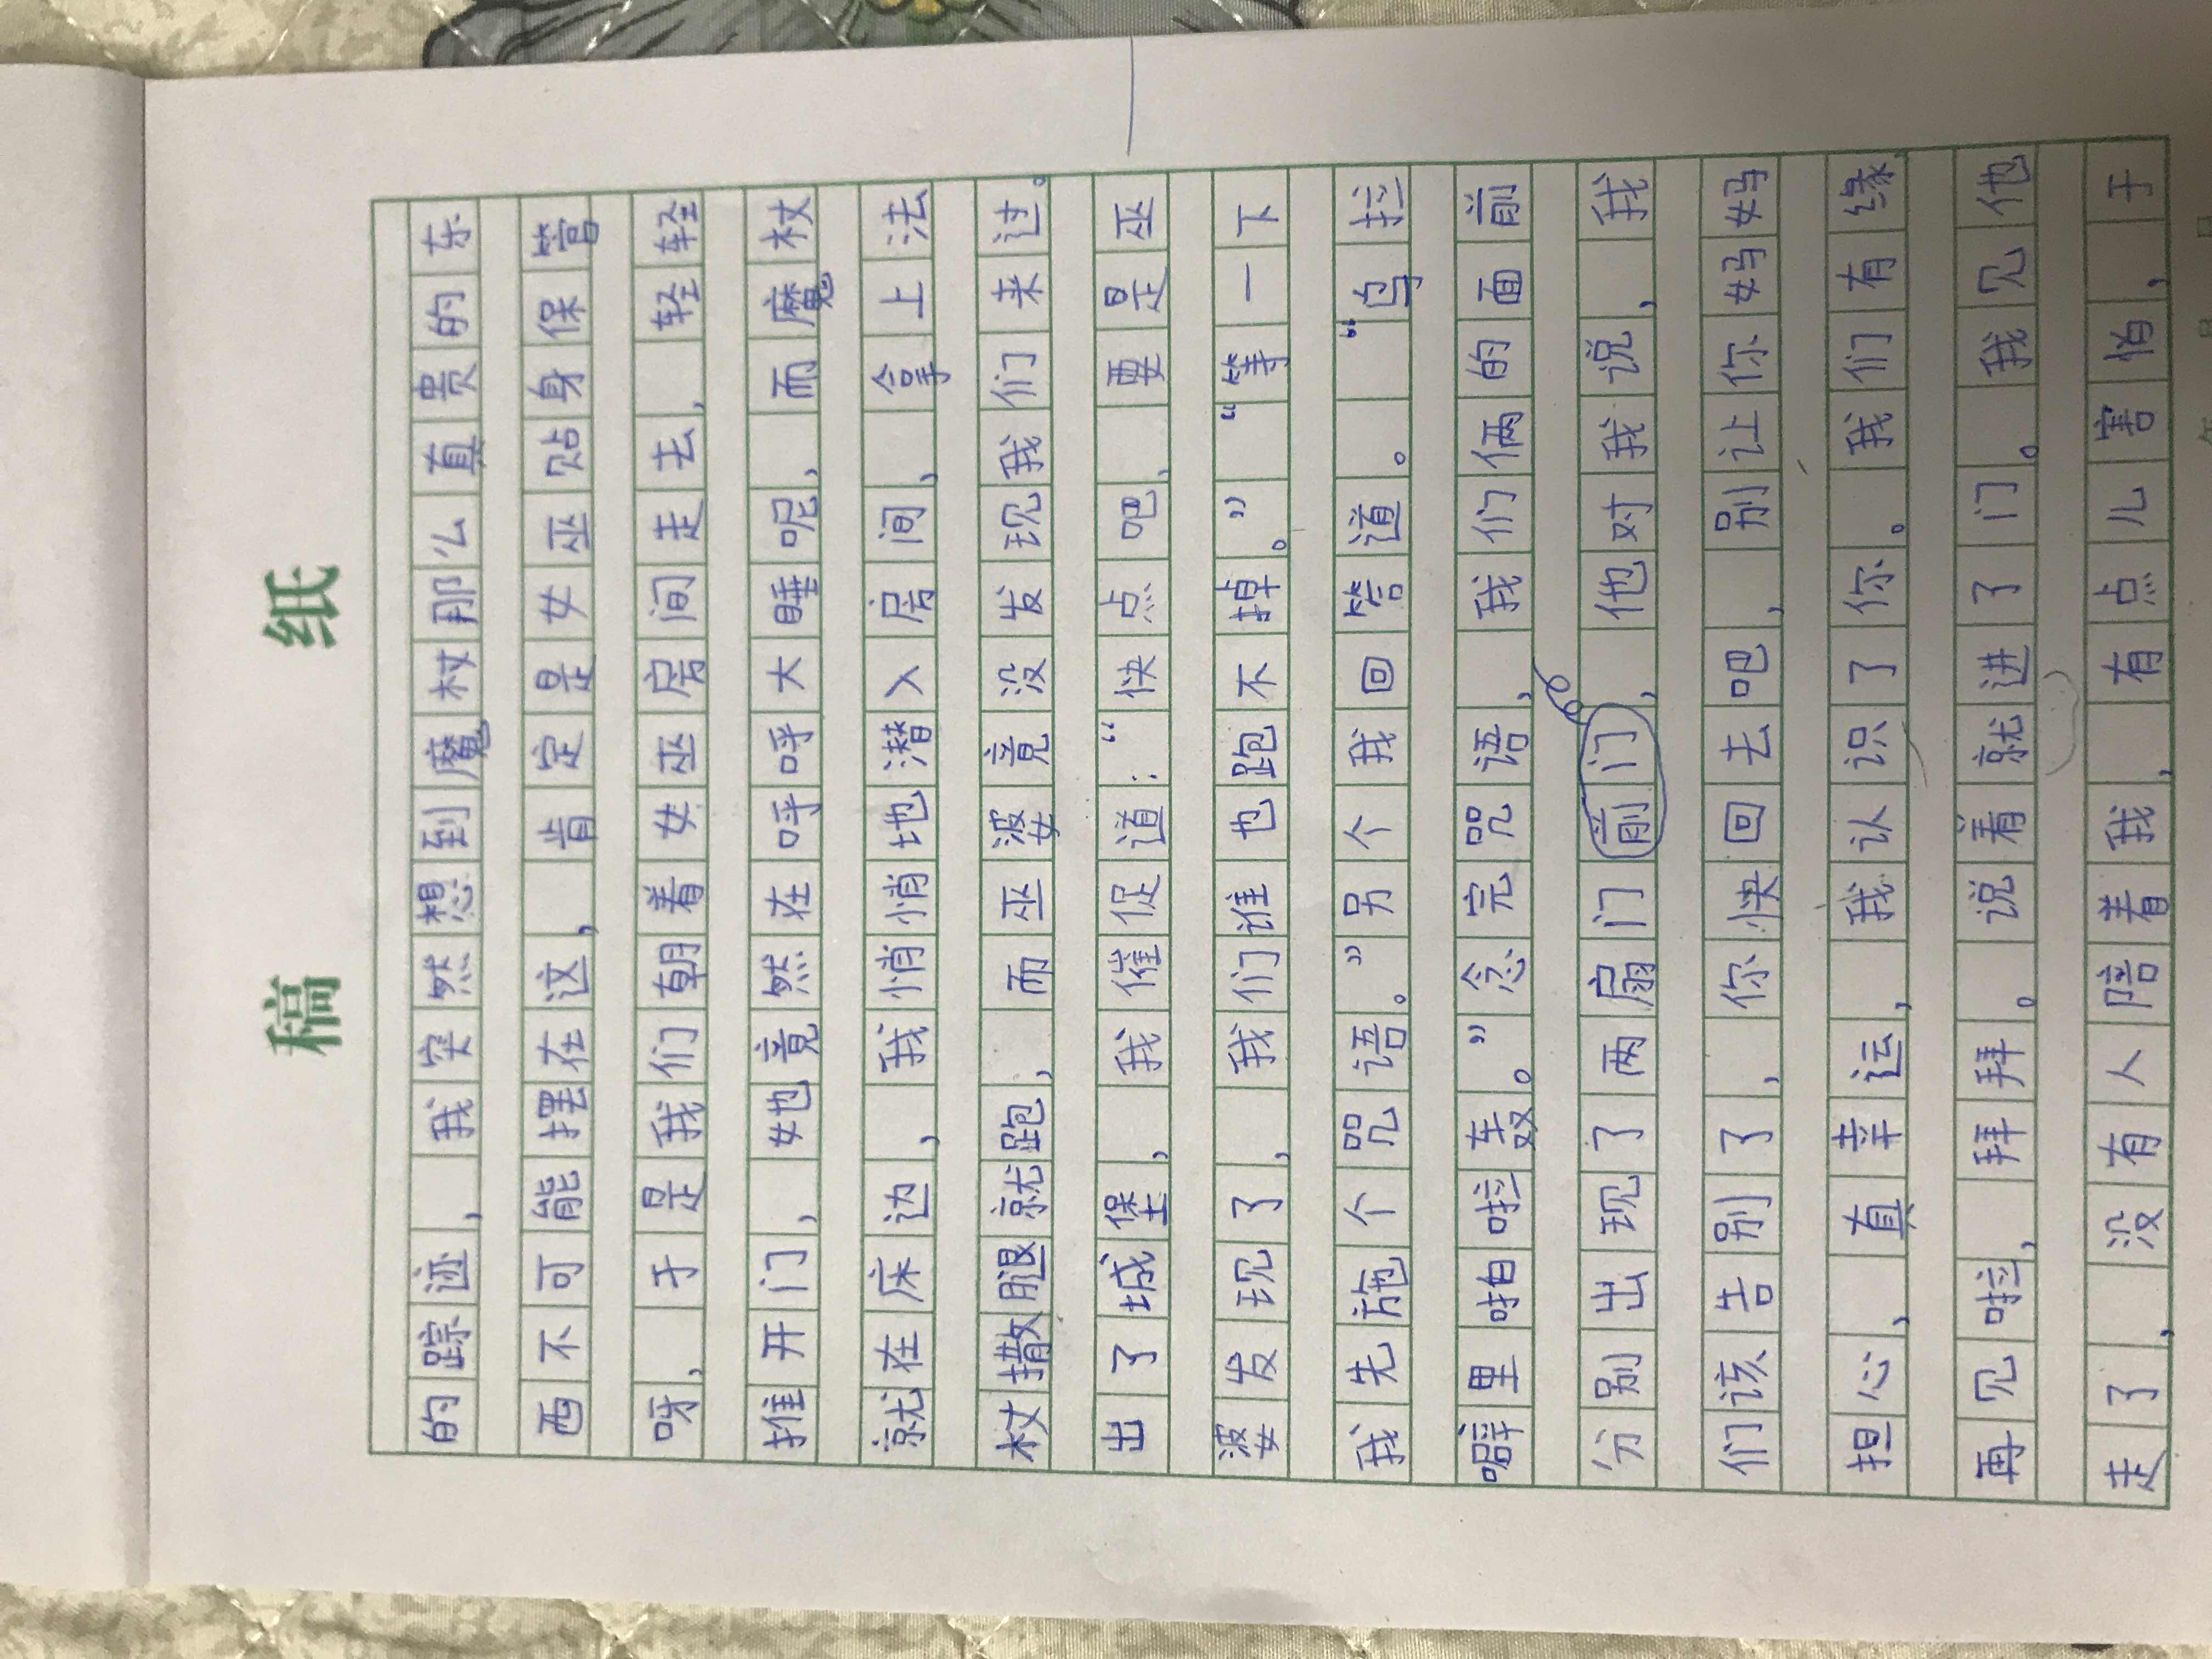 稿 纸
的踪迹，我突然想到魔杖那么真贵的东
西不可能摆在这，肯定是女巫贴身保管
呀，于是我们朝着女巫房间走去，轻轻
推开门，她竟然在呼呼大睡呢，而魔杖
就在床边，我悄悄地潜入房间，拿上法
杖撒腿就跑，而巫婆竟没发现我们来过。
出了城堡，我催促道：“快点吧，要是巫
婆发现了，我们谁也跑不掉。”“等一下
我先施个咒语。”另个我回答道。“乌拉
噼里啪啦轰。”念完咒语，我们俩的面前
分别出现了两扇门前门，他对我说，我
们该告别了，你快回去吧，别让你妈妈
担心，真幸运，我认识了你。我们有缘
再见啦，拜拜。说着就进了门。我见他
走了，没有人陪着我，有点儿害怕，于